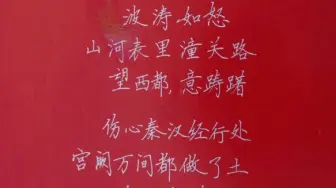 波涛如怒
山河表里潼关路
望西都,意踌躇
伤心秦汉经行处
宫阙万间都做了土